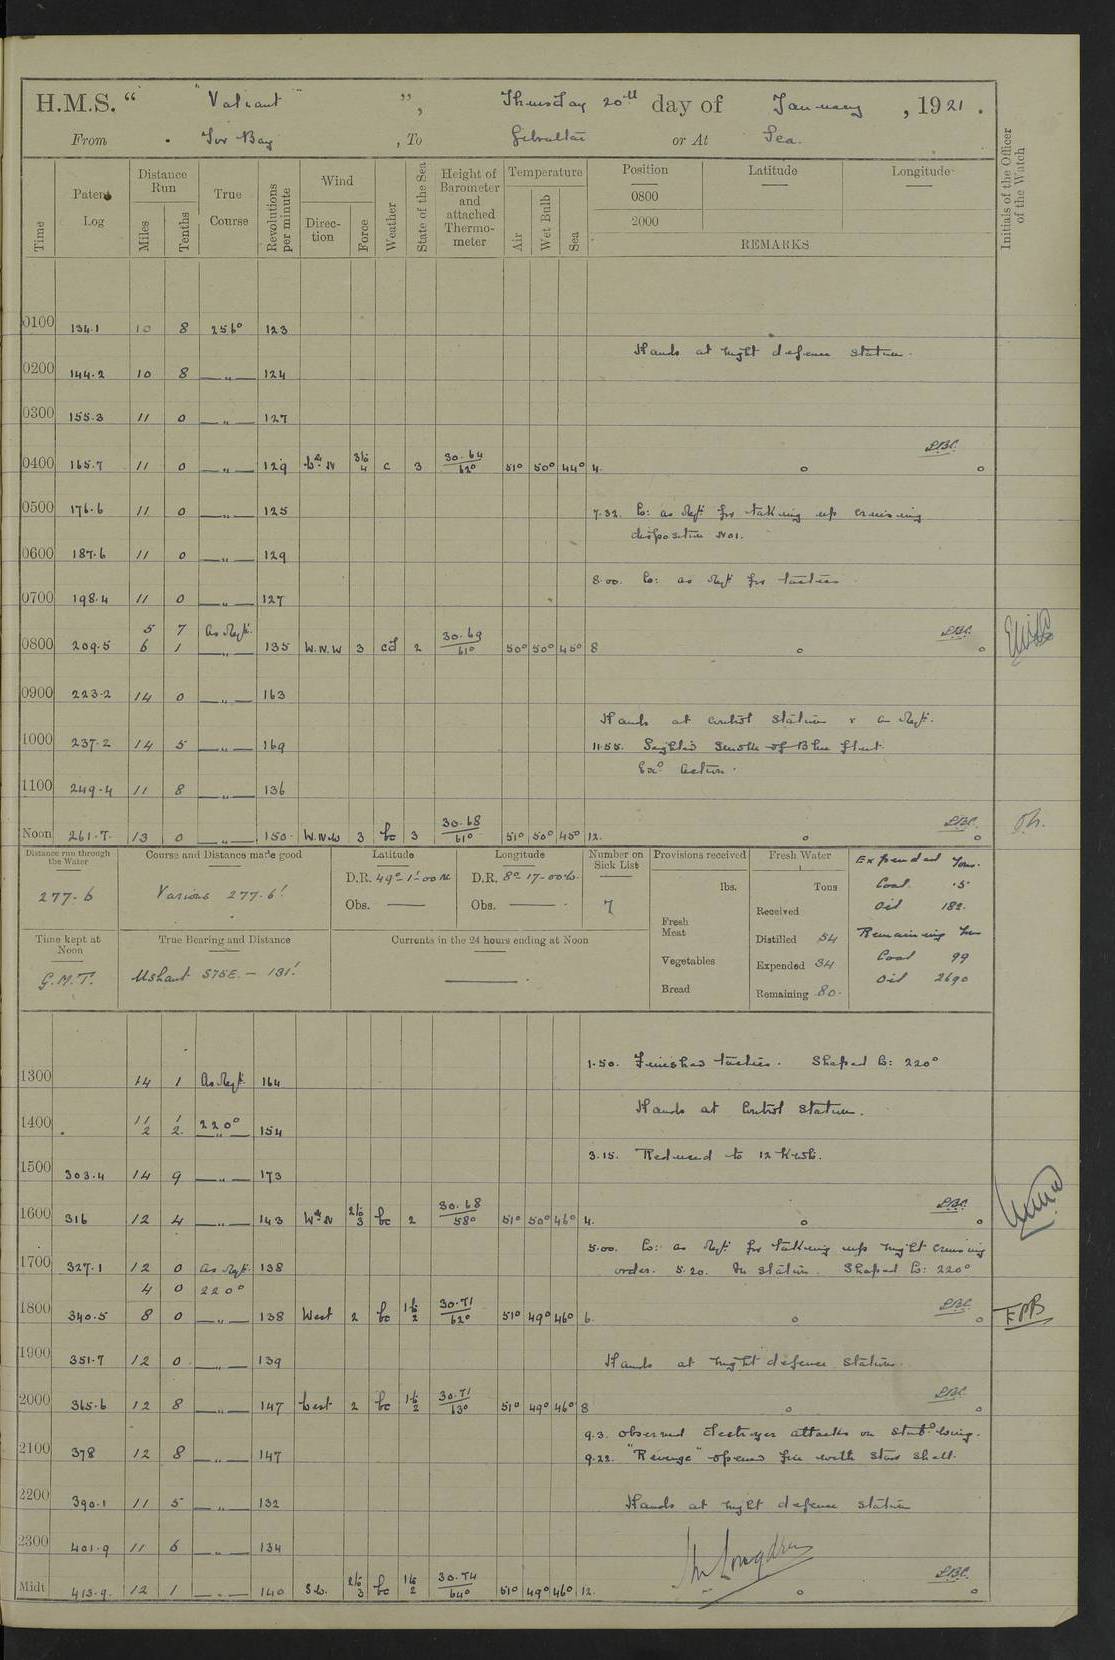 H.M.S. " "Valiant" ", Thursday 20th day of January, 1921.
From Tor Bay, To Gibraltar or At Sea.
Time
Patent Log
Distance Run
Miles
Tenths
True Course
Revolutions per minute
Wind
Direction
Force
Weather
State of the Sea
Height of Barometer and attached Thermometer
Temperature
Air
Wet Bulb
Sea
Position
0800
2000
Latitude
Longitude
REMARKS
Initials of the Officer of the Watch
0100 134.1 10 8 256° 123
Hands at night defence station.
0200 144.2 10 8 —"— 124
0300 155.3 11 0 —"— 127
L.B.C.
0400 165.7 11 0 —"— 129 W by N 3 to 4 c 3 30.64 / 62° 51° 50° 44° 4.
0500 176.6 11 0 —"— 125
7.32. Co: as Req: for taking up cruising
disposition No1.
0600 187.6 11 0 —"— 129
8.00. Co: as Req: for tactics
0700 198.4 11 0 —"— 127
5 7 As Req:
L.B.C.
0800 209.5 6 1 —"— 135 W.N.W 3 cd 2 30.69 / 61° 50° 50° 45° 8
0900 223.2 14 0 —"— 163
Hands at control station & as Req:
1000 237.2 14 5 —"— 169
11.55. Sighted smoke of Blue fleet.
Exd action.
1100 249.4 11 8 —"— 136
L.B.C.
Noon 261.7 13 0 —"— 150 W.N.W 3 bc 3 30.68 / 61° 51° 50° 45° 12.
Distance run through the Water
277.6
Course and Distance made good
Various 277.6'
Latitude
D.R. 49°-1'-00 N
Obs. ——
Longitude
D.R. 8°-17-00 W.
Obs. ——
Number on Sick List
7
Provisions received
lbs.
Fresh Meat
Vegetables
Bread
Fresh Water
Tons
Received
Distilled 54
Expended 34
Remaining 80.
Expended Tons.
Coal .5
Oil 182.
Remaining Tons
Coal 99
Oil 2690
Time kept at Noon
G.M.T.
True Bearing and Distance
Ushant S75E. — 131'
Currents in the 24 hours ending at Noon
——
1.50. Finished tactics. Shaped Co: 220°
1300 14 1 As Req: 164
Hands at Control station.
1400 11 1 220°
2 2 —"— 154
3.15. Reduced to 12 Knots.
1500 303.4 14 9 —"— 173
L.B.C.
1600 316 12 4 —"— 143 W by N 2 to 3 bc 2 30.68 / 58° 51° 50° 46° 4.
5.00. Co: as Req: for taking up night cruising
order. 5.20. In station. Shaped Co: 220°
1700 327.1 12 0 As Req: 138
4 0 220°
L.B.C.
1800 340.5 8 0 —"— 138 West 2 bc 1 to 2 30.71 / 62° 51° 49° 46° 6.
EPB
1900 351.7 12 0 —"— 139
Hands at night defence station.
L.B.C.
2000 365.6 12 8 —"— 147 West 2 bc 1 to 2 30.71 / 63° 51° 49° 46° 8
9.3. Observed destroyer attacks on Starbd wing.
2100 378 12 8 —"— 147
9.22. "Revenge" opened fire with star shell.
2200 390.1 11 5 —"— 132
Hands at night defence station
2300 401.9 11 6 —"— 134
L.B.C.
Midt 413.9 12 1 —"— 140 S.W. 2 to 3 bc 1 to 2 30.74 / 64° 51° 49° 46° 12.